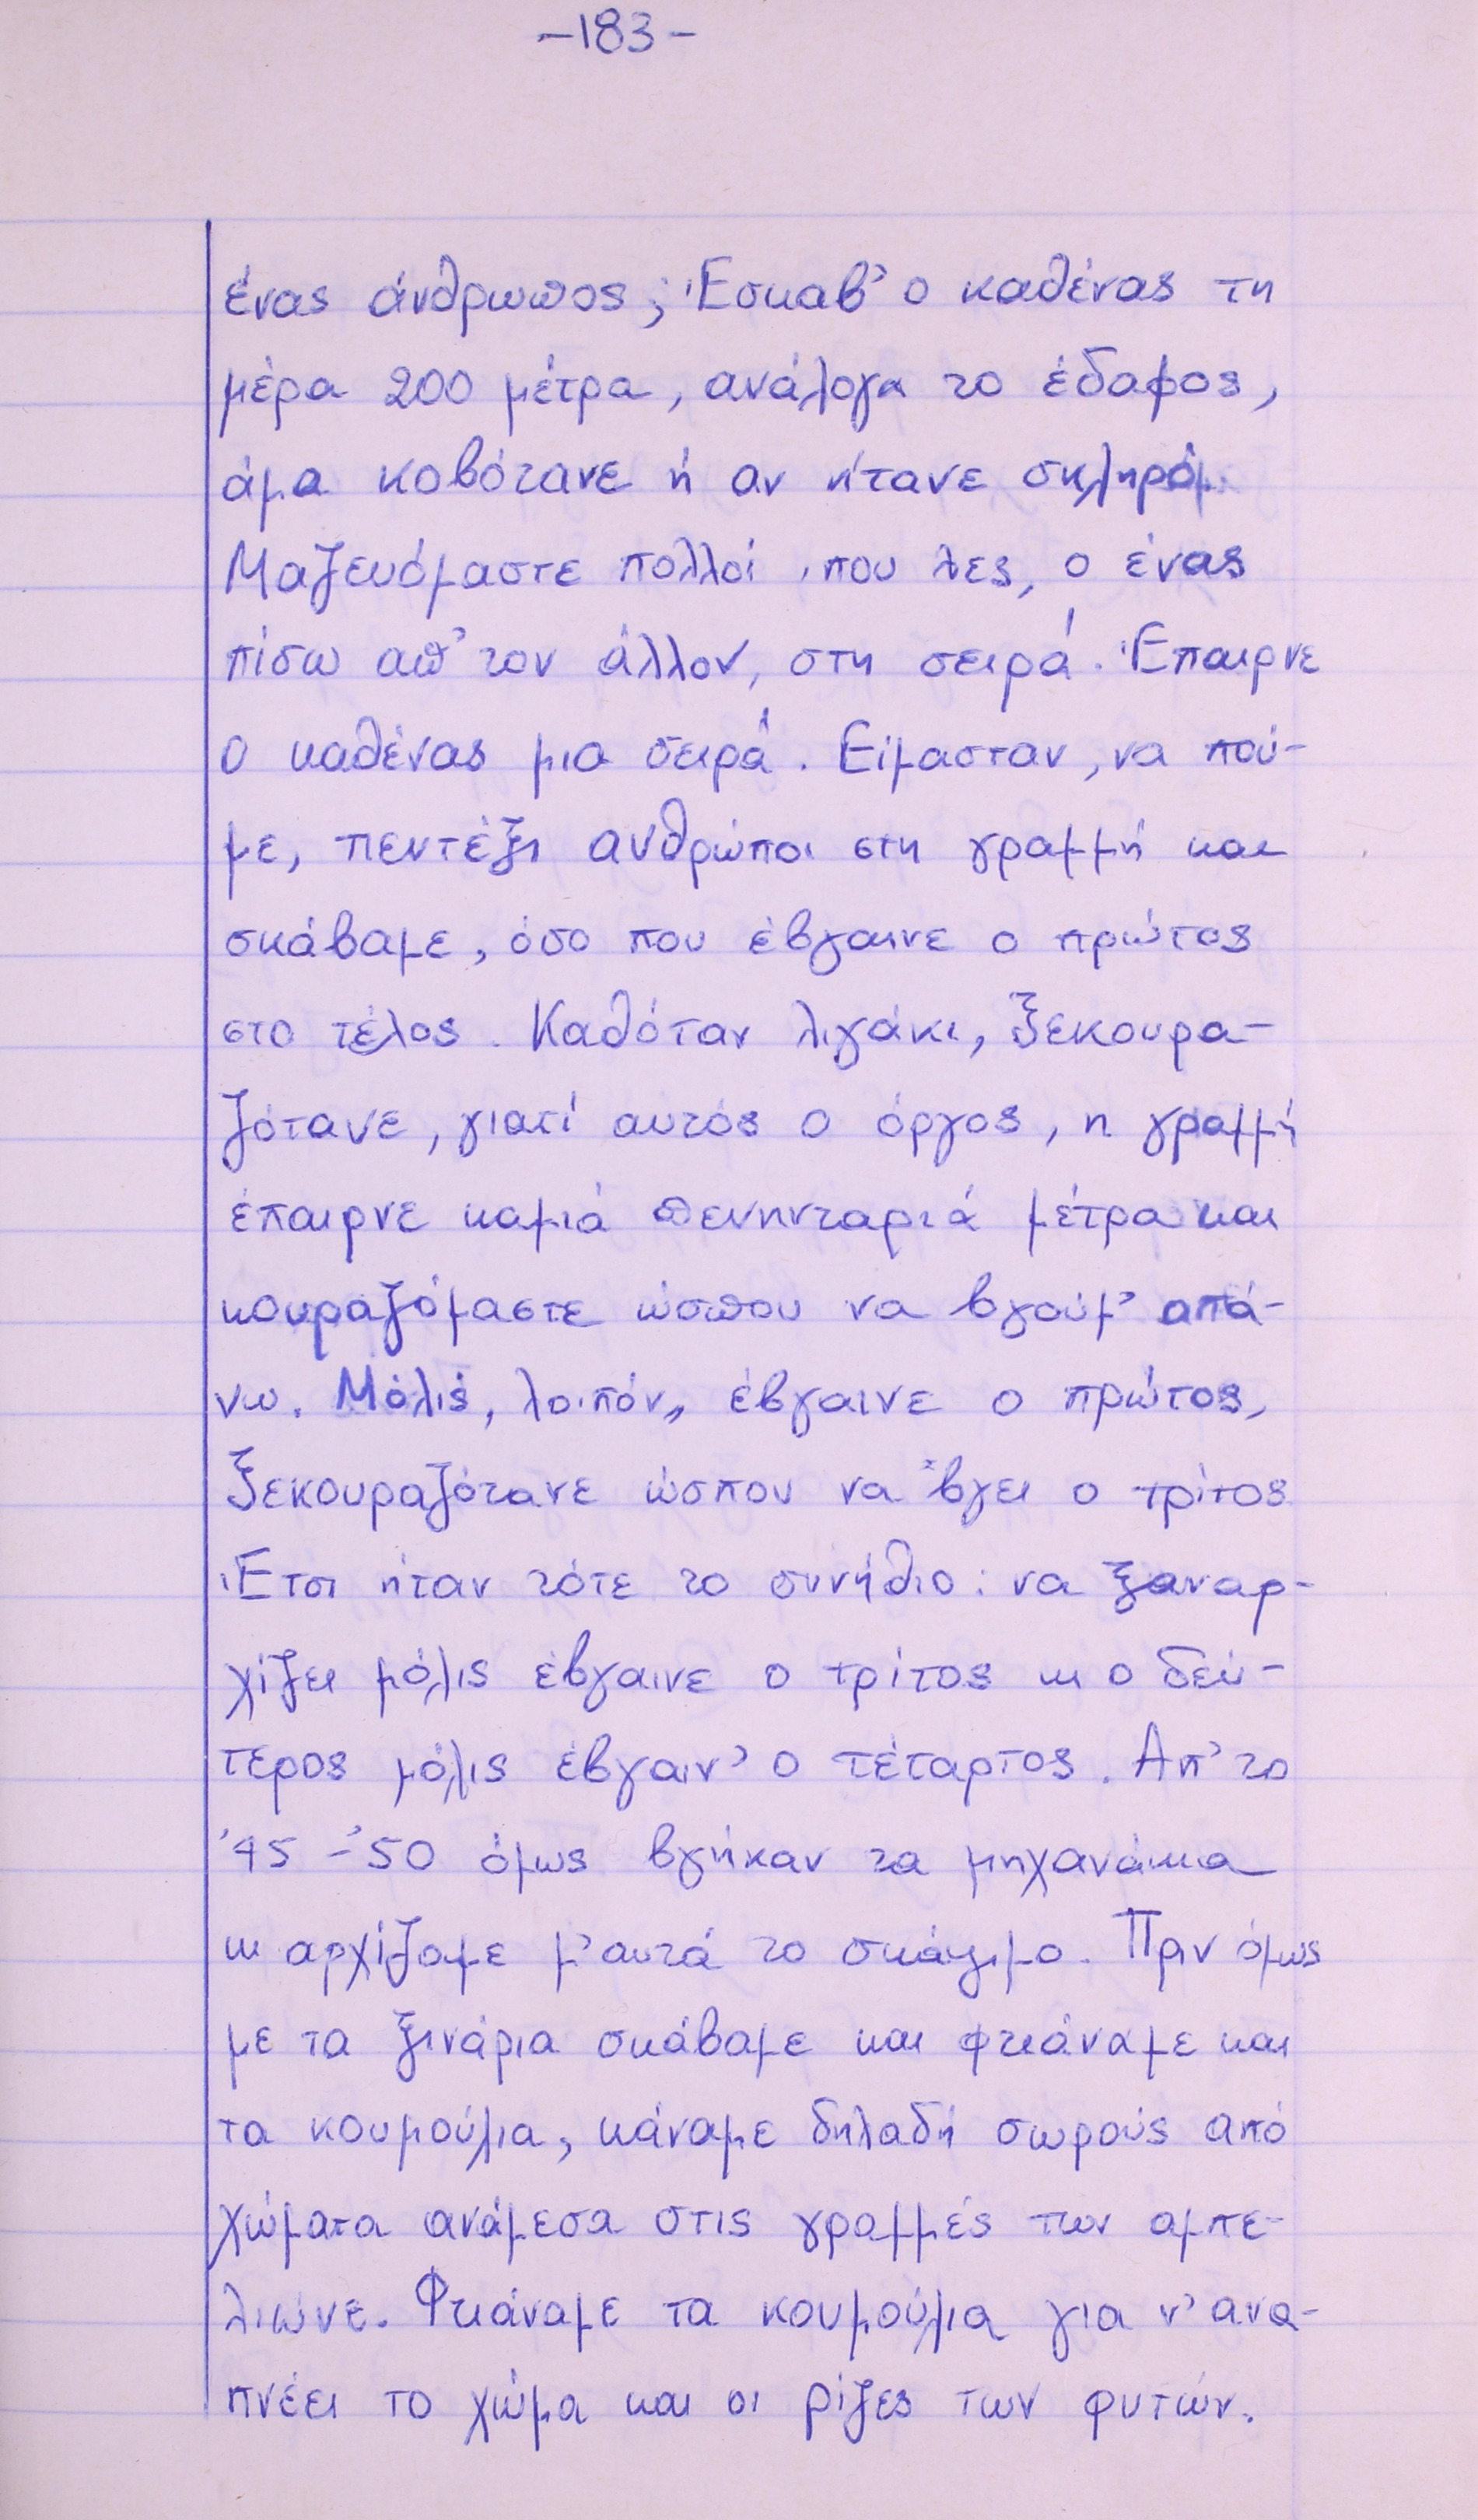 -183-
ένας άνθρωπος; Έσκαβ' ο καθένας τη
μέρα 200 μέτρα, ανάλογα το έδαφος,
άμα κοβότανε ή αν ήτανε σκληρό.
Μαζευόμαστε πολλοί, που λες, ο ένας
πίσω απ' τον άλλον, στη σειρά. Έπαιρνε
ο καθένας μια σειρά. Είμασταν, να πού-
με, πεντέξι ανθρώποι στη γραμμή και
σκάβαμε, όσο που έβγαινε ο πρώτος
στο τέλος. Καθόταν λιγάκι, ξεκουρα-
ζότανε, γιατί αυτός ο όργος, η γραμμή
έπαιρνε καμιά πενηνταριά μέτρα και
κουραζόμαστε ώσπου να βγούμ' απά-
νω. Μόλις, λοιπόν, έβγαινε ο πρώτος,
ξεκουραζότανε ώσπου να 'βγει ο τρίτος
Έτσι ήταν τότε το συνήθιο: να ξαναρ-
χίζει μόλις έβγαινε ο τρίτος κι ο δεύ-
τερος μόλις έβγαιν' ο τέταρτος. Απ' το
'45 -'50 όμως βγήκαν τα μηχανάκια
κι αρχίζαμε μ' αυτά το σκάψιμο. Πριν όμως
με τα ξινάρια σκάβαμε και φτιάναμε και
τα κουμούλια, κάναμε δηλαδή σωρούς από
χώματα ανάμεσα στις γραμμές των αμπε-
λιώνε. Φτιάναμε τα κουμούλια για ν' ανα-
πνέει το χώμα και οι ρίζες των φυτών.